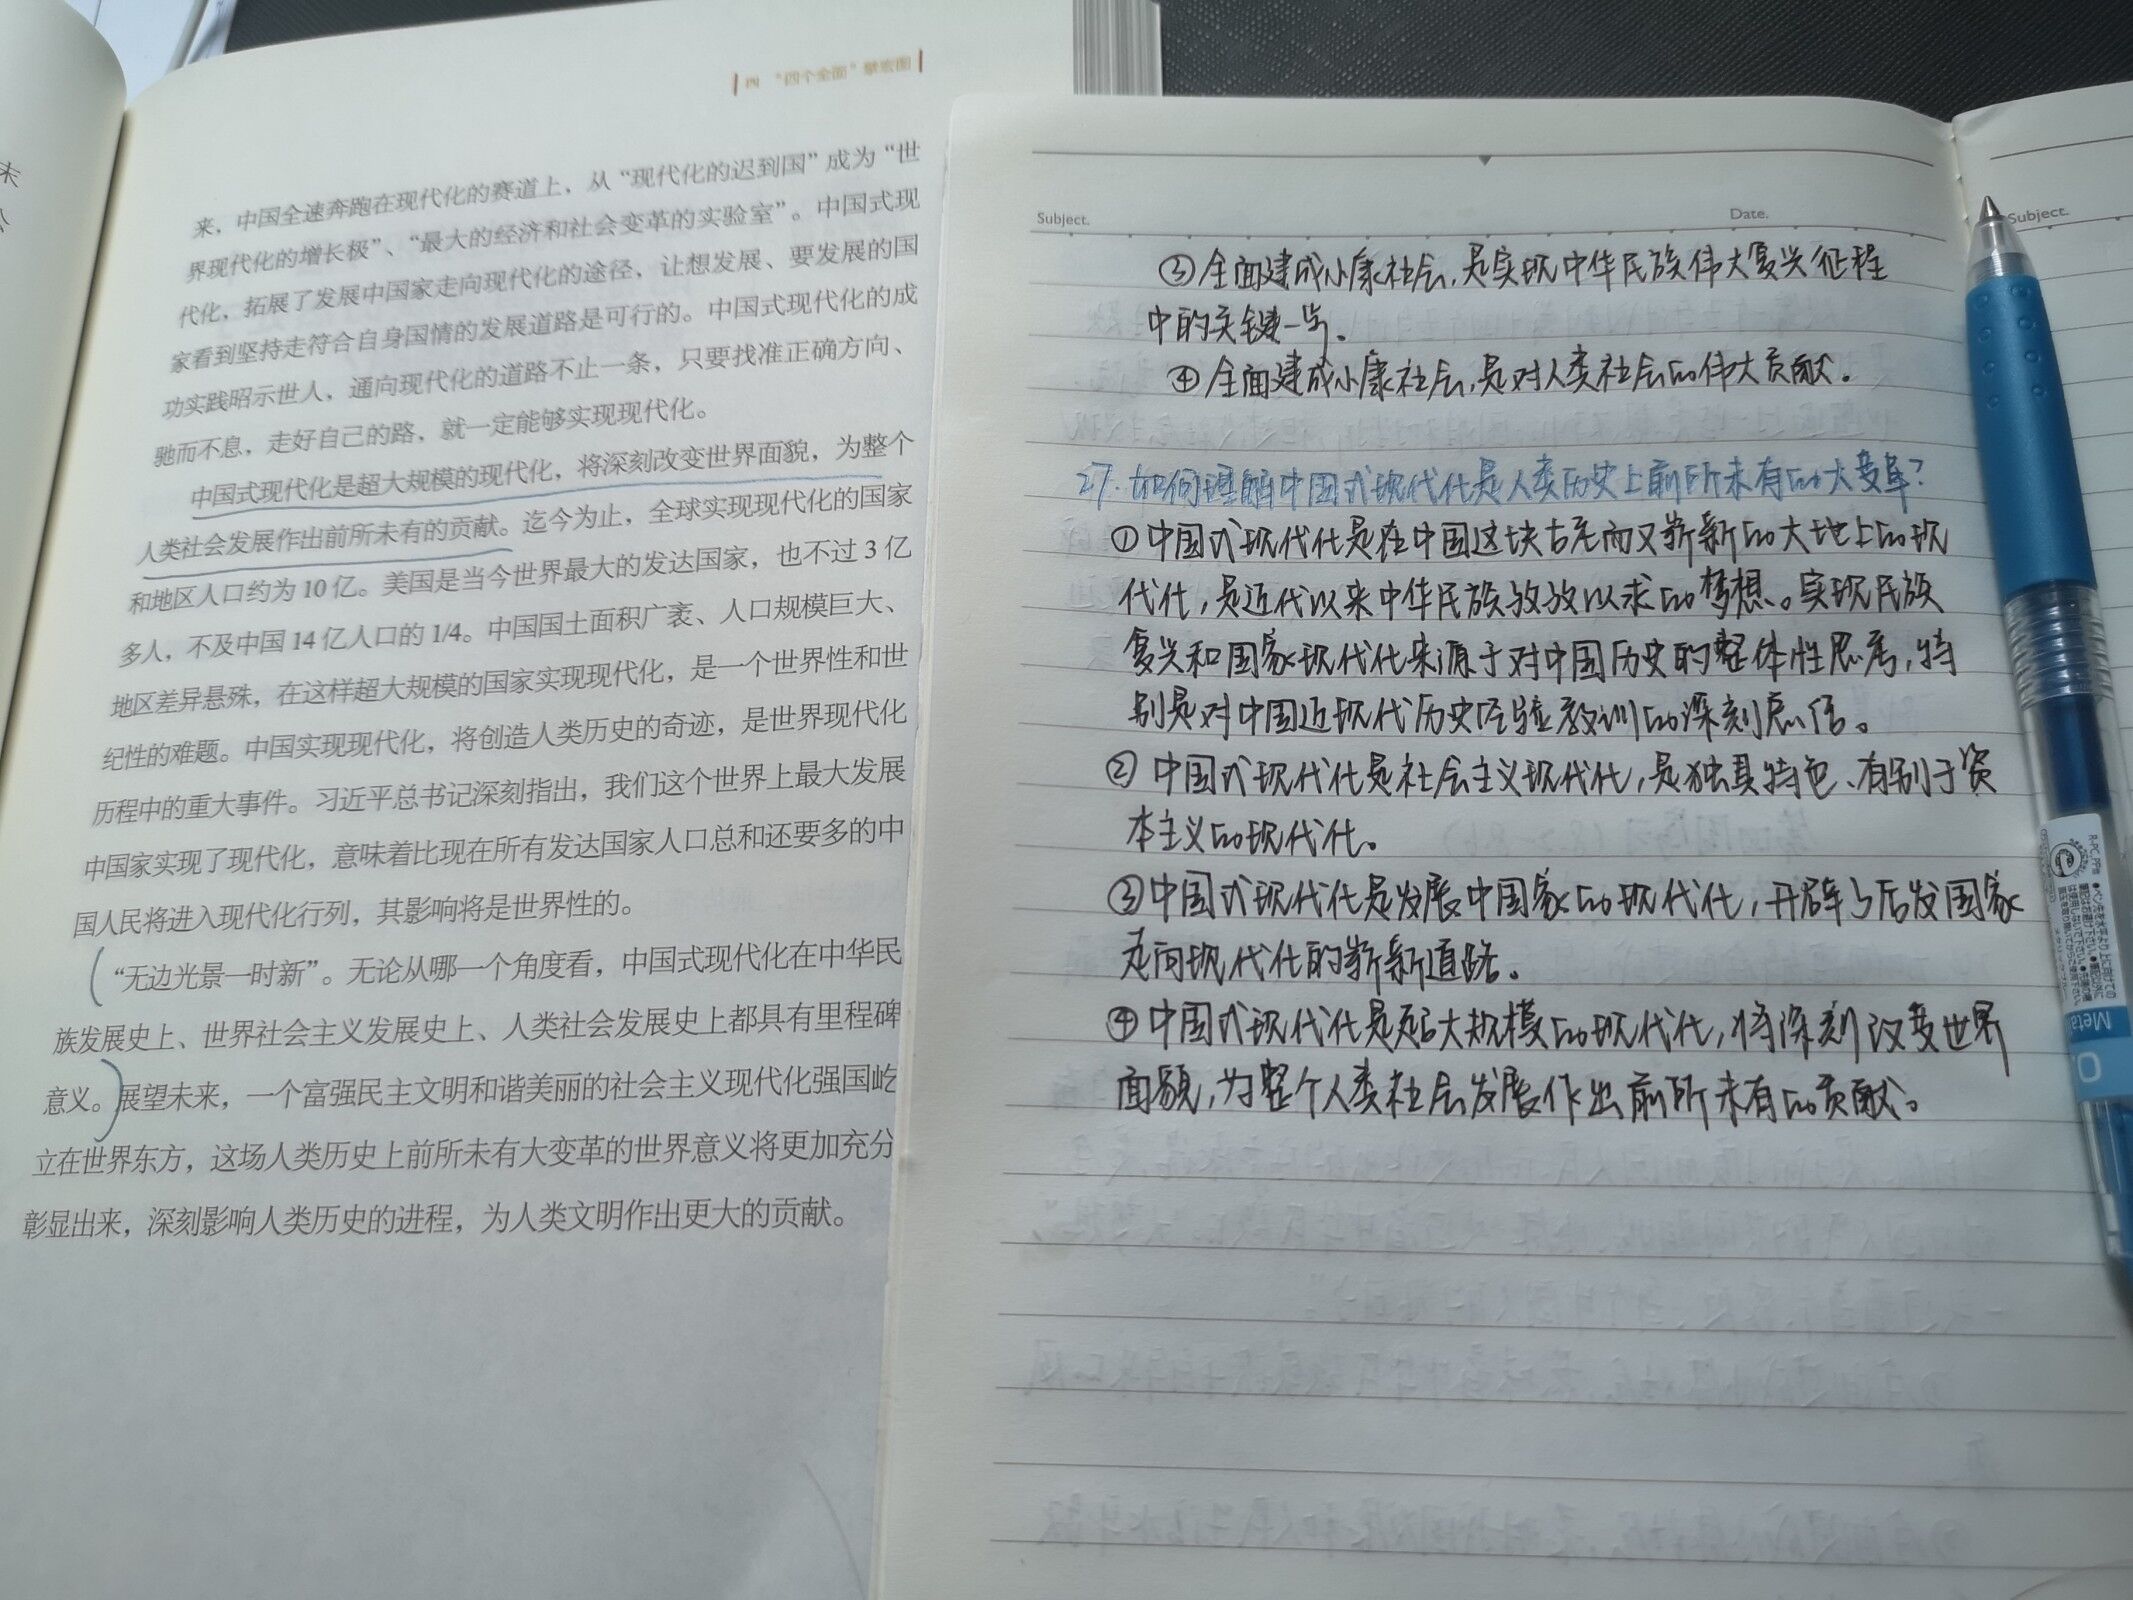 四 “四个全面”擘宏图
来，中国全速奔跑在现代化的赛道上，从“现代化的迟到国”成为“世
界现代化的增长极”、“最大的经济和社会变革的实验室”。中国式现
代化，拓展了发展中国家走向现代化的途径，让想发展、要发展的国
家看到坚持走符合自身国情的发展道路是可行的。中国式现代化的成
功实践昭示世人，通向现代化的道路不止一条，只要找准正确方向、
驰而不息，走好自己的路，就一定能够实现现代化。
中国式现代化是超大规模的现代化，将深刻改变世界面貌，为整个
人类社会发展作出前所未有的贡献。迄今为止，全球实现现代化的国家
和地区人口约为10亿。美国是当今世界最大的发达国家，也不过3亿
多人，不及中国14亿人口的1/4。中国国土面积广袤、人口规模巨大、
地区差异悬殊，在这样超大规模的国家实现现代化，是一个世界性和世
纪性的难题。中国实现现代化，将创造人类历史的奇迹，是世界现代化
历程中的重大事件。习近平总书记深刻指出，我们这个世界上最大发展
中国家实现了现代化，意味着比现在所有发达国家人口总和还要多的中
国人民将进入现代化行列，其影响将是世界性的。
“无边光景一时新”。无论从哪一个角度看，中国式现代化在中华民
族发展史上、世界社会主义发展史上、人类社会发展史上都具有里程碑
意义。展望未来，一个富强民主文明和谐美丽的社会主义现代化强国屹
立在世界东方，这场人类历史上前所未有大变革的世界意义将更加充分
彰显出来，深刻影响人类历史的进程，为人类文明作出更大的贡献。
Subject.
Date.
③全面建成小康社会，是实现中华民族伟大复兴征程
中的关键一步。
④全面建成小康社会，是对人类社会的伟大贡献。
27.如何理解中国式现代化是人类历史上前所未有的大变革？
①中国式现代化是在中国这块古老而又崭新的大地上的现
代化，是近代以来中华民族孜孜以求的梦想。实现民族
复兴和国家现代化来源于对中国历史的整体性思考，特
别是对中国近现代历史经验教训的深刻总结。
②中国式现代化是社会主义现代化，是独具特色、有别于资
本主义的现代化。
③中国式现代化是发展中国家的现代化，开辟了后发国家
走向现代化的崭新道路。
④中国式现代化是超大规模的现代化，将深刻改变世界
面貌，为整个人类社会发展作出前所未有的贡献。
Subject.
Metal
0.